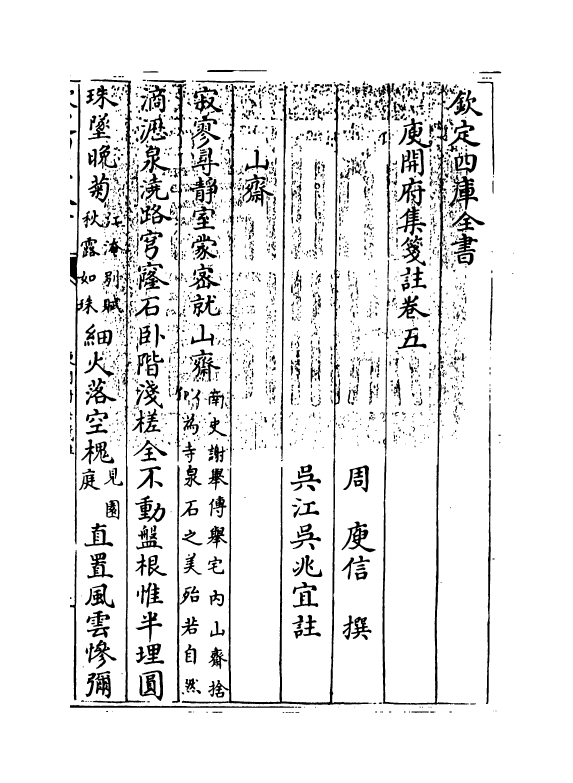 欽定四庫全書
庾開府集箋註卷五
周　庾信　撰
吳江吳兆宜註
山齋
寂寥尋靜室蒙密就山齋南史謝舉傳舉宅內山齋捨以為寺泉石之美殆若自然
滴瀝泉澆路穹窿石卧階淺槎全不動盤根惟半埋圓
珠墜晚菊江淹别賦秋露如珠細火落空槐見園庭直置風雲慘彌